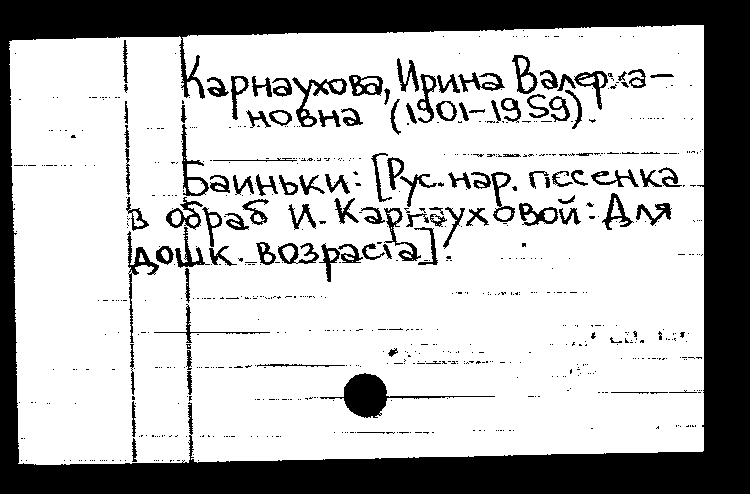 Карнаухова, Ирина Валериа-
новна (1901-1959).
Баиньки: [Рус. нар. песенка
в обраб И. Карнауховой: Для
дошк. возраста].